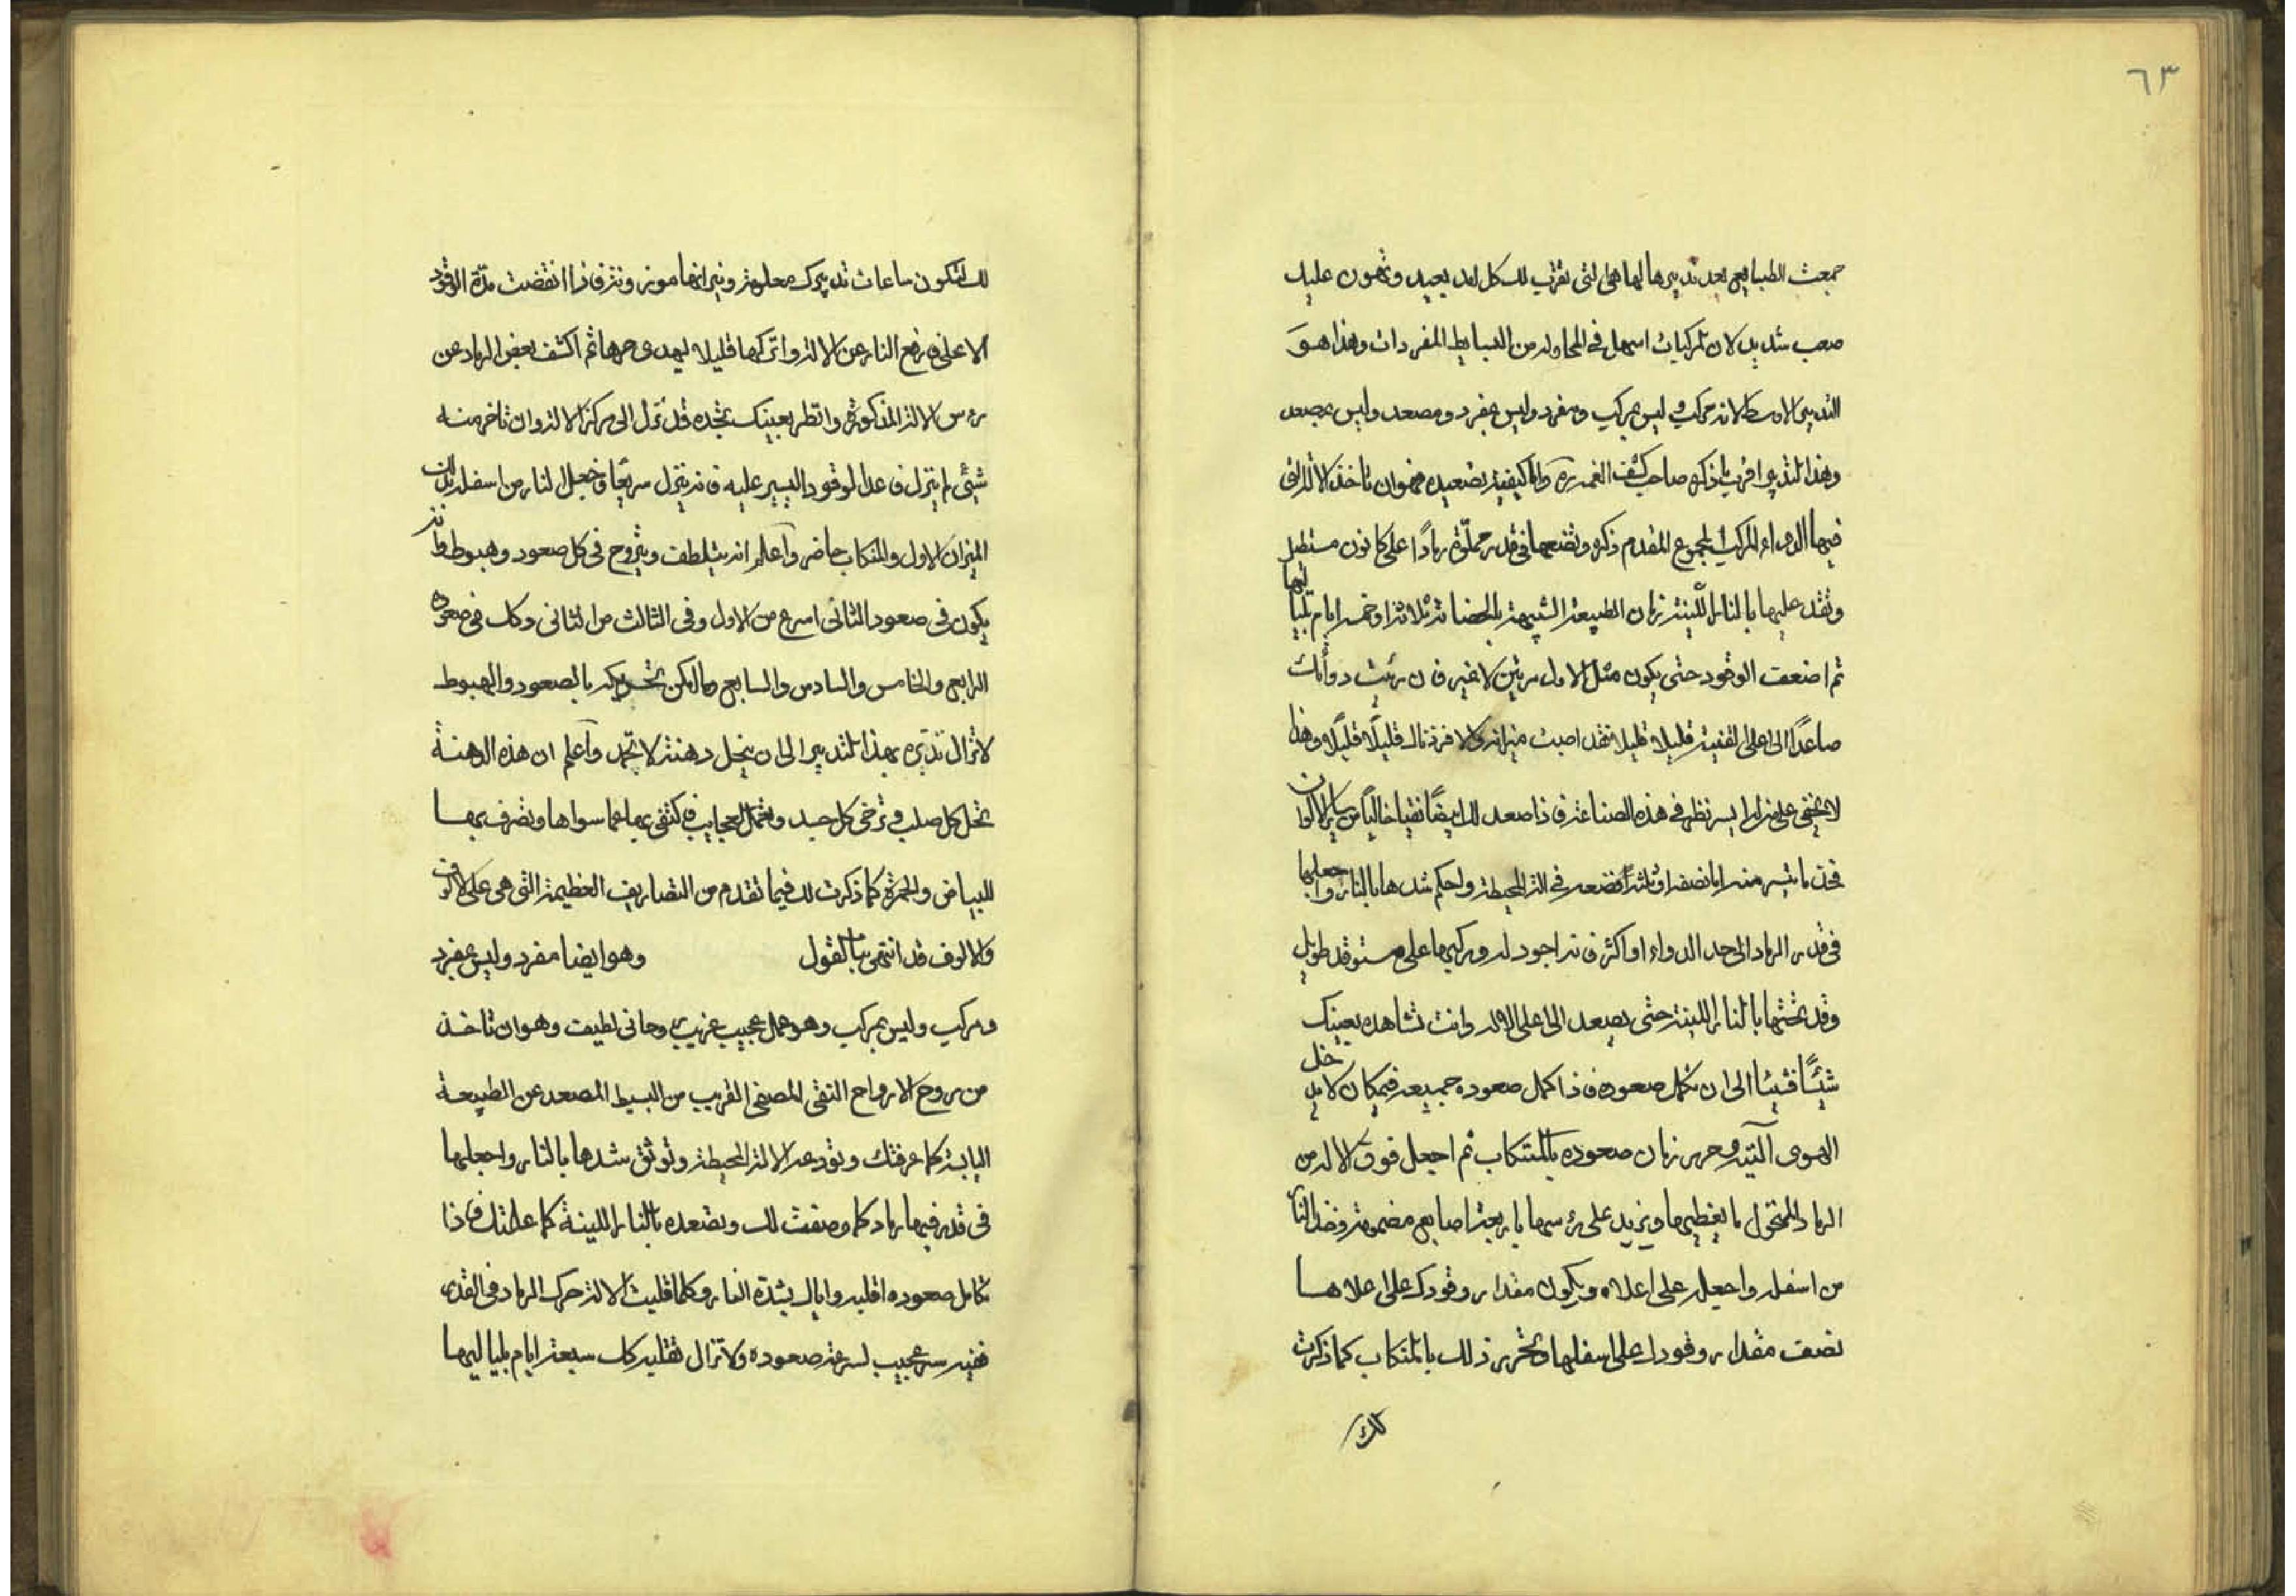 ٦٣
جمعت الطبايع بعد تدبيرها لها هى التى تقرب لك كل امد بعيد وتهون عليك
صعب شديد لان المركبات اسهل فى المحاوله من البسايط المفردات وهذا هو
التدبير الاوسط لانه مركب وليس بمركب ومفرد وليس بمفرد ومصعد وليس بمصعد
وهذا التدبير اقرب ما ذكره صاحب كشف الغمه واما كيفية تصعيده فهو ان تاخذ الالة التى
فيها الدواء المركب المجموع المقدم ذكره وتضعها فى قدر مملوة رمادًا على كانون مستطيل
وتقد عليها بالنار اللينة زمان الطبيعة الشبيهة بالحضانة ثلاثة او خمسة ايام بلياليها
ثم اضعف الوقود حتى يكون مثل الاول مرتين لا غير فان رئيت دوائك
صاعدًا الى اعلى القنينة قليلا قليلا فقد اصبت ميزانه والا فزد ناره قليلًا قليلًا وهذا
لا يخفى على من له ايسر نظر فى هذه الصناعة فاذا صعد لك ابيضًا نقيا خاليًا من ساير الالوان
فخذ ما تيسر منه اما نصفه او ثلثه فضعه فى الة المحيطة واحكم شدها بالنار واجعلها
فى قدر الرماد الى حد الدواء او اكثر فانه اجود له وركبها على مستوقد طويل
وقد تحتها بالنار اللينة حتى يصعد الى اعلى الاله وانت تشاهده بعينك
شيئًا فشيئا الى ان تكمل صعوده فاذا كمل صعوده جميعه فيمكان كامل خل
الهوى آلتيه وحرر زمان صعوده بالمنكاب ثم اجعل فوق الاله من
الرماد المنخول ما يغطيها ويزيد على رؤسها باربعة اصابع مضمومة وخذ النار
من اسفله واجعله على اعلاه ويكون مقدار وقودك على اعلاها
نصف مقدار وقودك على اسفلها وتحرير ذلك بالمنكاب كما ذكرت
لك
لك لتكون ساعات تدبيرك معلومة ونيرانها موزونة فاذا انقضت مدة الوقود
الاعلى فارفع النار عن الالة واتركها قليلا ليهدى حرها ثم اكشف بعض الرماد عن
رؤس الالة المذكورة وانظر بعينك تجده قد نزل الى مركز الالة وان تاخر منه
شيئ لم ينزل فاعد الوقود اليسير عليه فانه ينزل سريعًا فاجعل النار من اسفله بذلك
الميزان الاول والمنكاب حاضر وآعلم انه يتلطف ويتروح فى كل صعود وهبوط وانه
يكون فى صعود الثانى اسرع من الاول وفى الثالث من الثانى وكك فى صعوده
الرابع والخامس والسادس والسابع وما امكن تحريكه بالصعود والهبوط
لا تزال تدبره بهذا التدبير الى ان ينحل دهنة لا تجمد وآعلم ان هذه الدهنة
تحل كل صلب وترخى كل جسد وتعمل العجايب فاكتفى بها عما سواها وتصرف بها
للبياض والحمرة كما ذكرت لك فيما تقدم من التصاريف العظيمة التى هى على الالوف
والالوف قد انتهى بنا القول وهو ايضا مفرد وليس بمفرد
ومركب وليس بمركب وهو عمل عجيب غريب روحانى لطيف وهو ان تاخذ
من روح الارواح النقى المصفى القريب من البسيط المصعد عن الطبيعة
اليابسة كما عرفتك وتودعه الالة المحيطة وتوثق شدها بالنار واجعلها
فى قدر فيها رماد كما وصفت لك وتصعده بالنار اللينة كما علمتك فاذا
تكامل صعوده اقلبه واياك بشدة النار وكلما قلبت الالة حرك الرماد فى القدر
ففيه سر عجيب لسرعة صعوده ولا تزال تقلبه كك سبعة ايام بلياليها